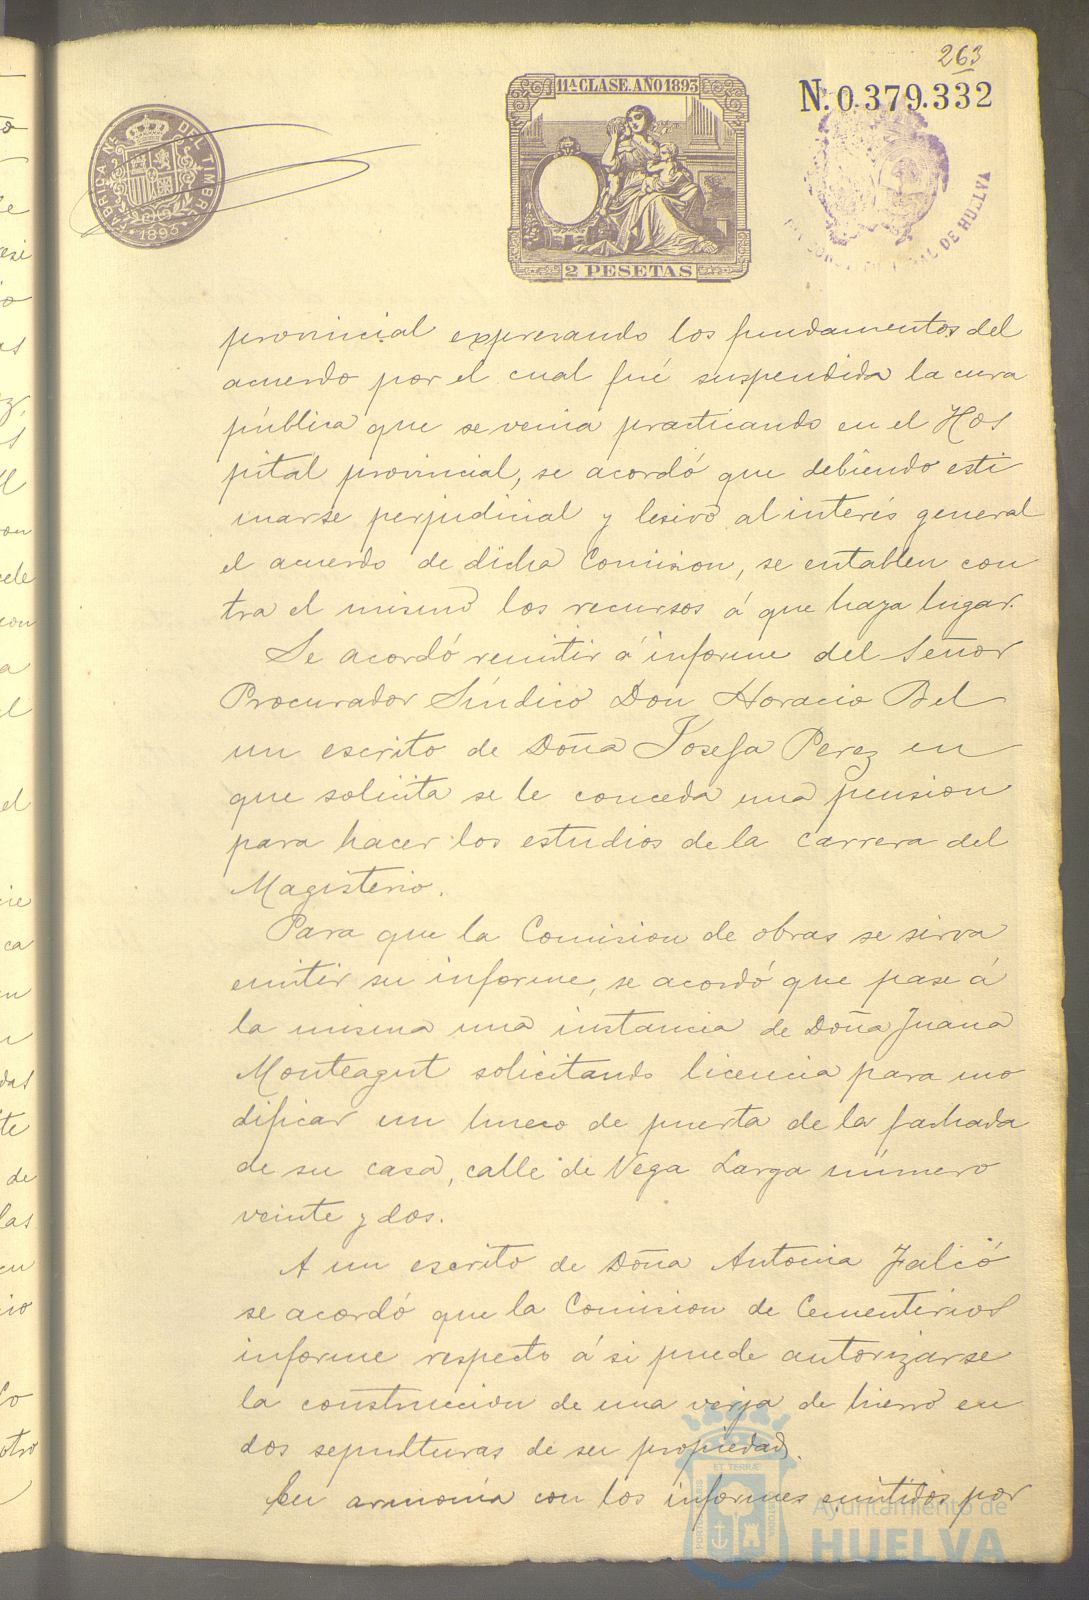 263
11ª CLASE. AÑO 1893
N. 0.379.332
FABRICA NAL. DEL TIMBRE
1893
2 PESETAS
CONSTITUCIONAL DE HUELVA
provincial expresando los fundamentos del
acuerdo por el cual fué suspendida la cura
pública que se venia practicando en el Hos
pital provincial, se acordó que debiendo esti
marse perjudicial y lesivo al interés general
el acuerdo de dicha Comision, se entablen con
tra el mismo los recursos á que haya lugar.
Se acordó remitir á informe del Señor
Procurador Síndico Don Horacio Bel
un escrito de Doña Josefa Perez en
que solicita se le conceda una pension
para hacer los estudios de la carrera del
Magisterio.
Para que la Comision de obras se sirva
emitir su informe, se acordó que pase á
la misma una instancia de Doña Juana
Monteagut solicitando licencia para mo
dificar un hueco de puerta de la fachada
de su casa, calle de Vega Larga número
veinte y dos.
A un escrito de Doña Antonia Falcó
se acordó que la Comision de Cementerios
informe respecto á si puede autorizarse
la construccion de una verja de hierro en
dos sepulturas de su propiedad.
En armonía con los informes emitidos por
Ayuntamiento de
HUELVA